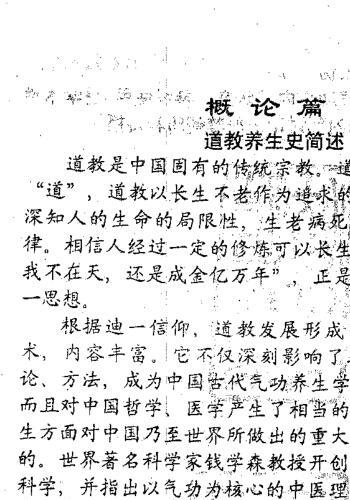 概论篇
道教养生史简述
道教是中国固有的传统宗教。道
“道”，道教以长生不老作为追求的
深知人的生命的局限性，生老病死
律。相信人经过一定的修炼可以长生
我不在天，还是成金亿万年”，正是
一思想。
根据迪一信仰，道教发展形成
术，内容丰富。它不仅深刻影响了
论、方法，成为中国古代气功养生学
而且对中国哲学、医学产生了相当的
生方面对中国乃至世界所做出的重大
的。世界著名科学家钱学森教授开创
科学，并指出以气功为核心的中医理